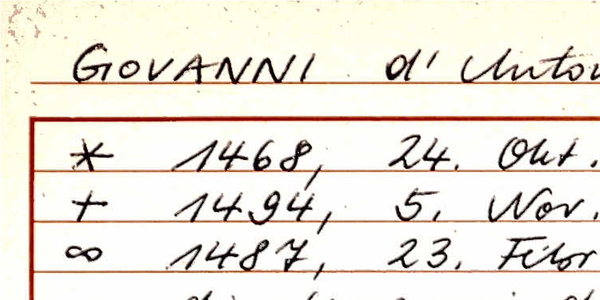 GIOVANNI d'Anton
* 1468, 24. Okt.
+ 1494, 5. Nov.
∞ 1487, 23.